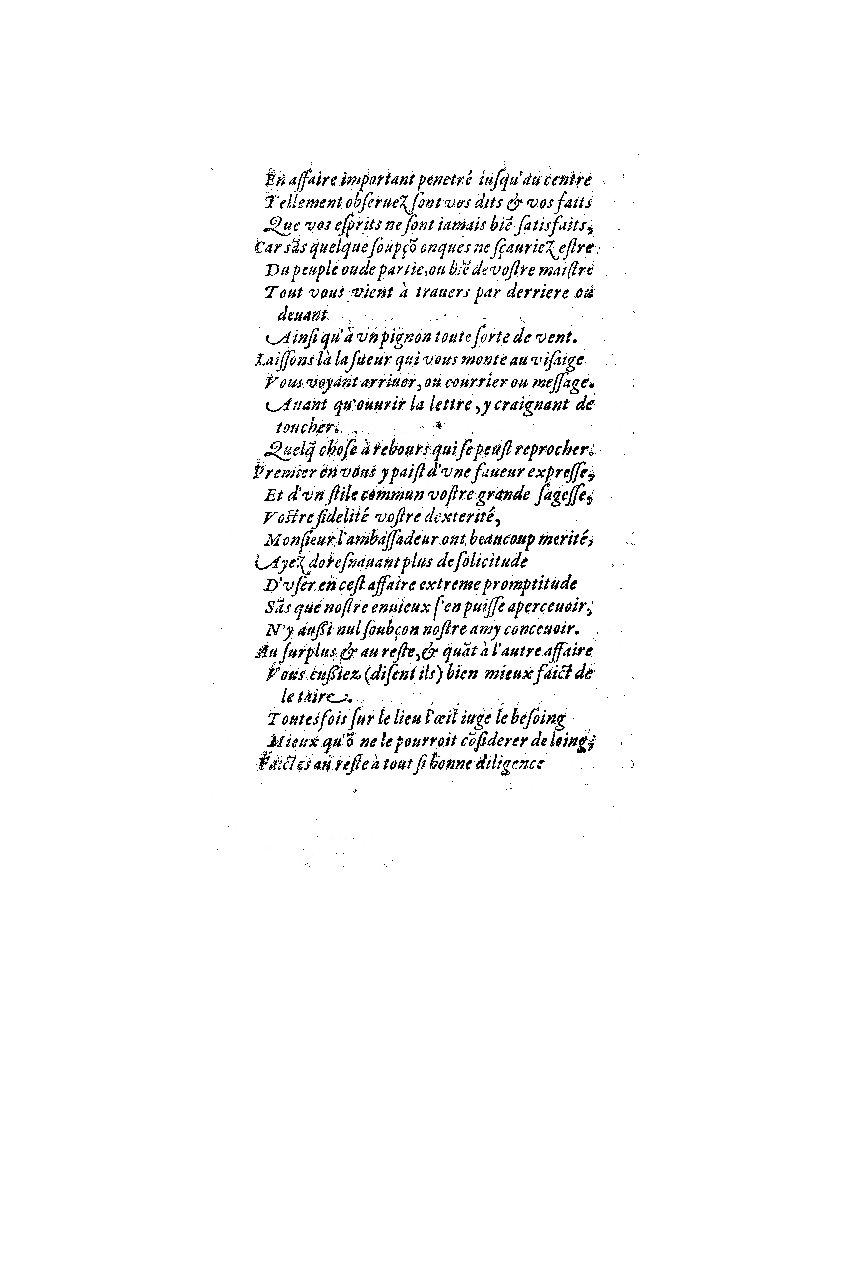 En affaire important penetré iuſqu'au centre
Tellement obſeruez ſont vos dits & vos faits
Que vos eſprits ne ſont iamais biẽ ſatisfaits,
Car sãs quelque ſoupçõ onques ne ſçauriez eſtre
Du peuple ou de partie, ou biẽ de voſtre maiſtre
Tout vous vient à trauers par derriere ou
deuant
Ainſi qu'à vn pignon toute ſorte de vent.
Laiſſons là la ſueur qui vous monte au viſaige
Vous voyant arriuer, ou courrier ou meſſage.
Auant qu'ouurir la lettre, y craignant de
toucher.
Quelq̃ choſe à rebours qui ſe peuſt reprocher.
Premier en vous y paiſt d'vne faueur expreſſe,
Et d'vn ſtile commun voſtre grande ſageſſe,
Voſtre fidelité voſtre dexterité,
Monſieur l'ambaſſadeur ont beaucoup merité,
Ayez doreſnauant plus de ſolicitude
D'vſer en ceſt affaire extreme promptitude
Sãs que noſtre enuieux ſ'en puiſſe aperceuoir,
N'y auſsi nul ſoubçon noſtre amy conceuoir.
Au ſurplus & au reſte, & quãt à l'autre affaire
Vous euſsiez (diſent ils) bien mieux faict de
le taire.
Toutesfois ſur le lieu l'œil iuge le beſoing
Mieux qu'õ ne le pourroit cõſiderer de loing,
Faictes au reſte à tout ſi bonne diligence